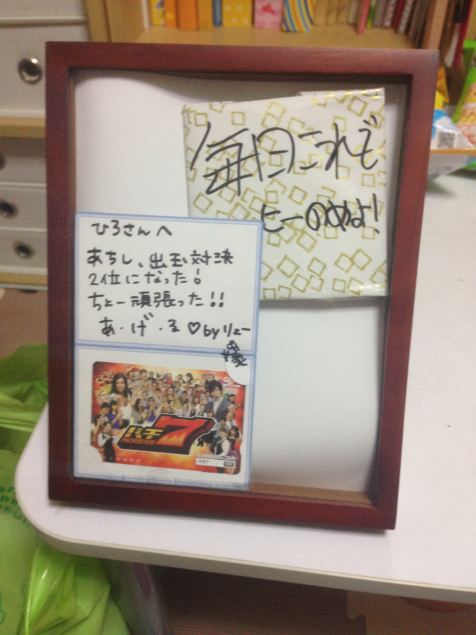 毎日これで
ヒーのめよ!
ひろさんへ
あちし、出玉対決
2位になった!
ちょー頑張った!!
あ・げ・る♡byりょー
の嫁
パチ7